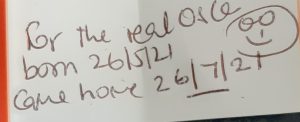 For the real Osca
born 26/5/21
Came home 26/7/21